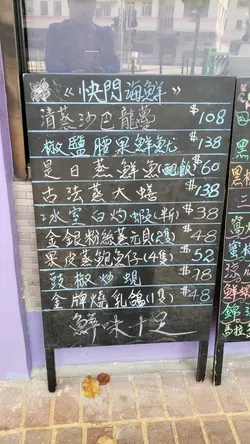 《快閃海鮮》
清蒸沙巴龍躉 $108
椒鹽脆果鮮魷 $138
是日蒸鮮魚(配飯) $60
古法蒸大鱔 $138
冰室白灼蝦(斤) $38
金銀粉絲蒸元貝(2隻) $48
果皮蒸鮑魚仔(4隻) $52
豉椒炒蜆 $78
金牌燒乳鴿(1隻) $48
鮮味十足